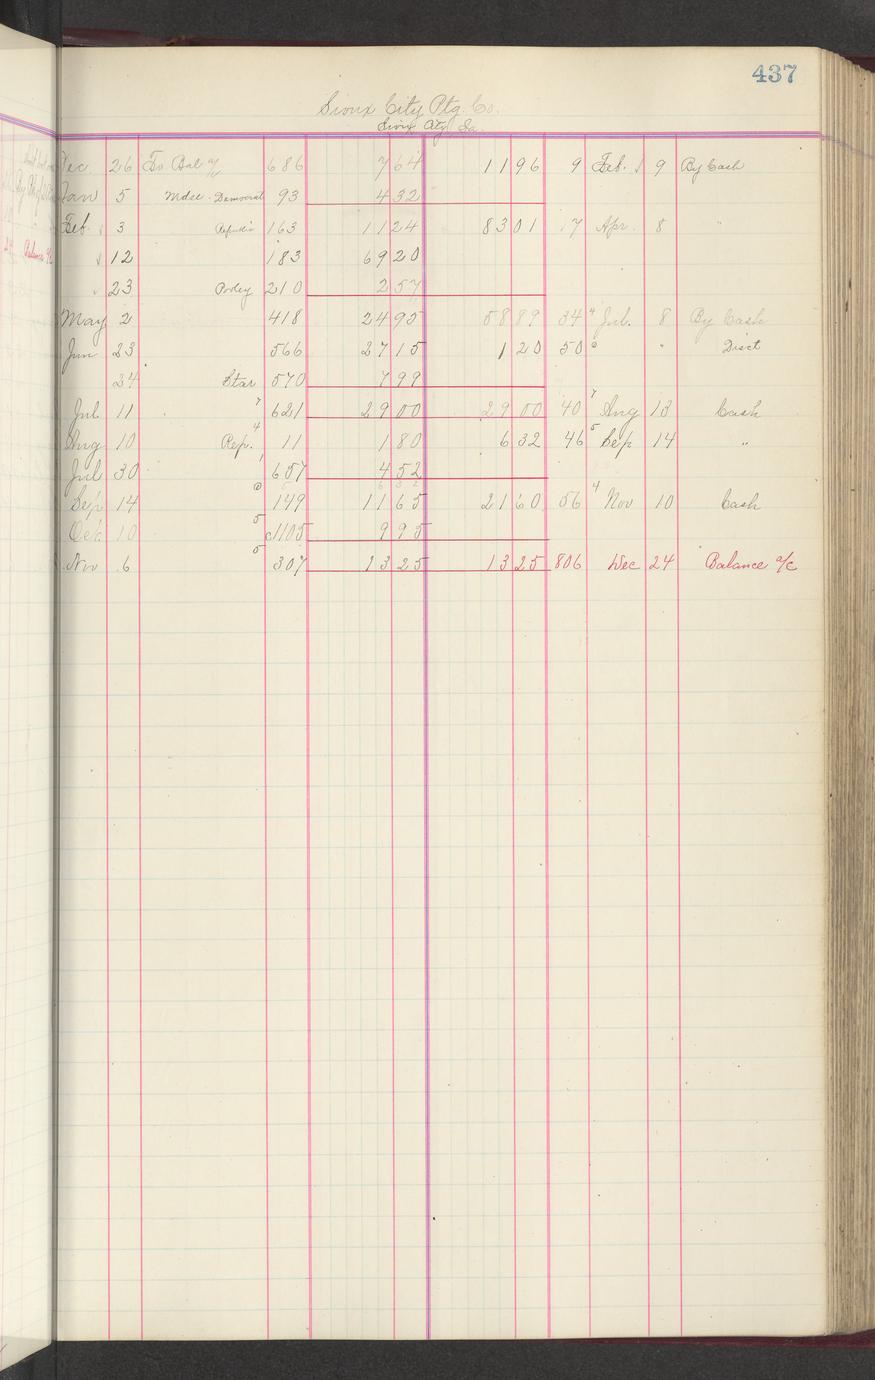 437
Sioux City Ptg. Co.
Sioux City Ia.
Dec 26 To Bal a/c 686 7 64 11 96 9 Feb. 9 By Cash
Jan 5 Mdse Democrat 93 4 32
Feb. 3 163 11 24 83 01 17 Apr. 8 "
12 183 69 20
23 210 2 57
May 2 418 24 95 58 89 34 4 Jul. 8 By Cash
Jun 23 566 27 15 1 20 50 " Disct
24 Star 570 7 99
Jul 11 7 621 29 00 29 00 40 7 Aug 13 Cash
Aug 10 Rep. 4 11 1 80 6 32 46 5 Sep 14 "
Jul 30 1 657 4 52
6 32
Sep 14 149 11 65 21 60 56 4 Nov 10 Cash
Oct 10 5 c1105 9 95
Nov 6 5 307 13 25 13 25 806 Dec 24 Balance a/c
Balance a/c